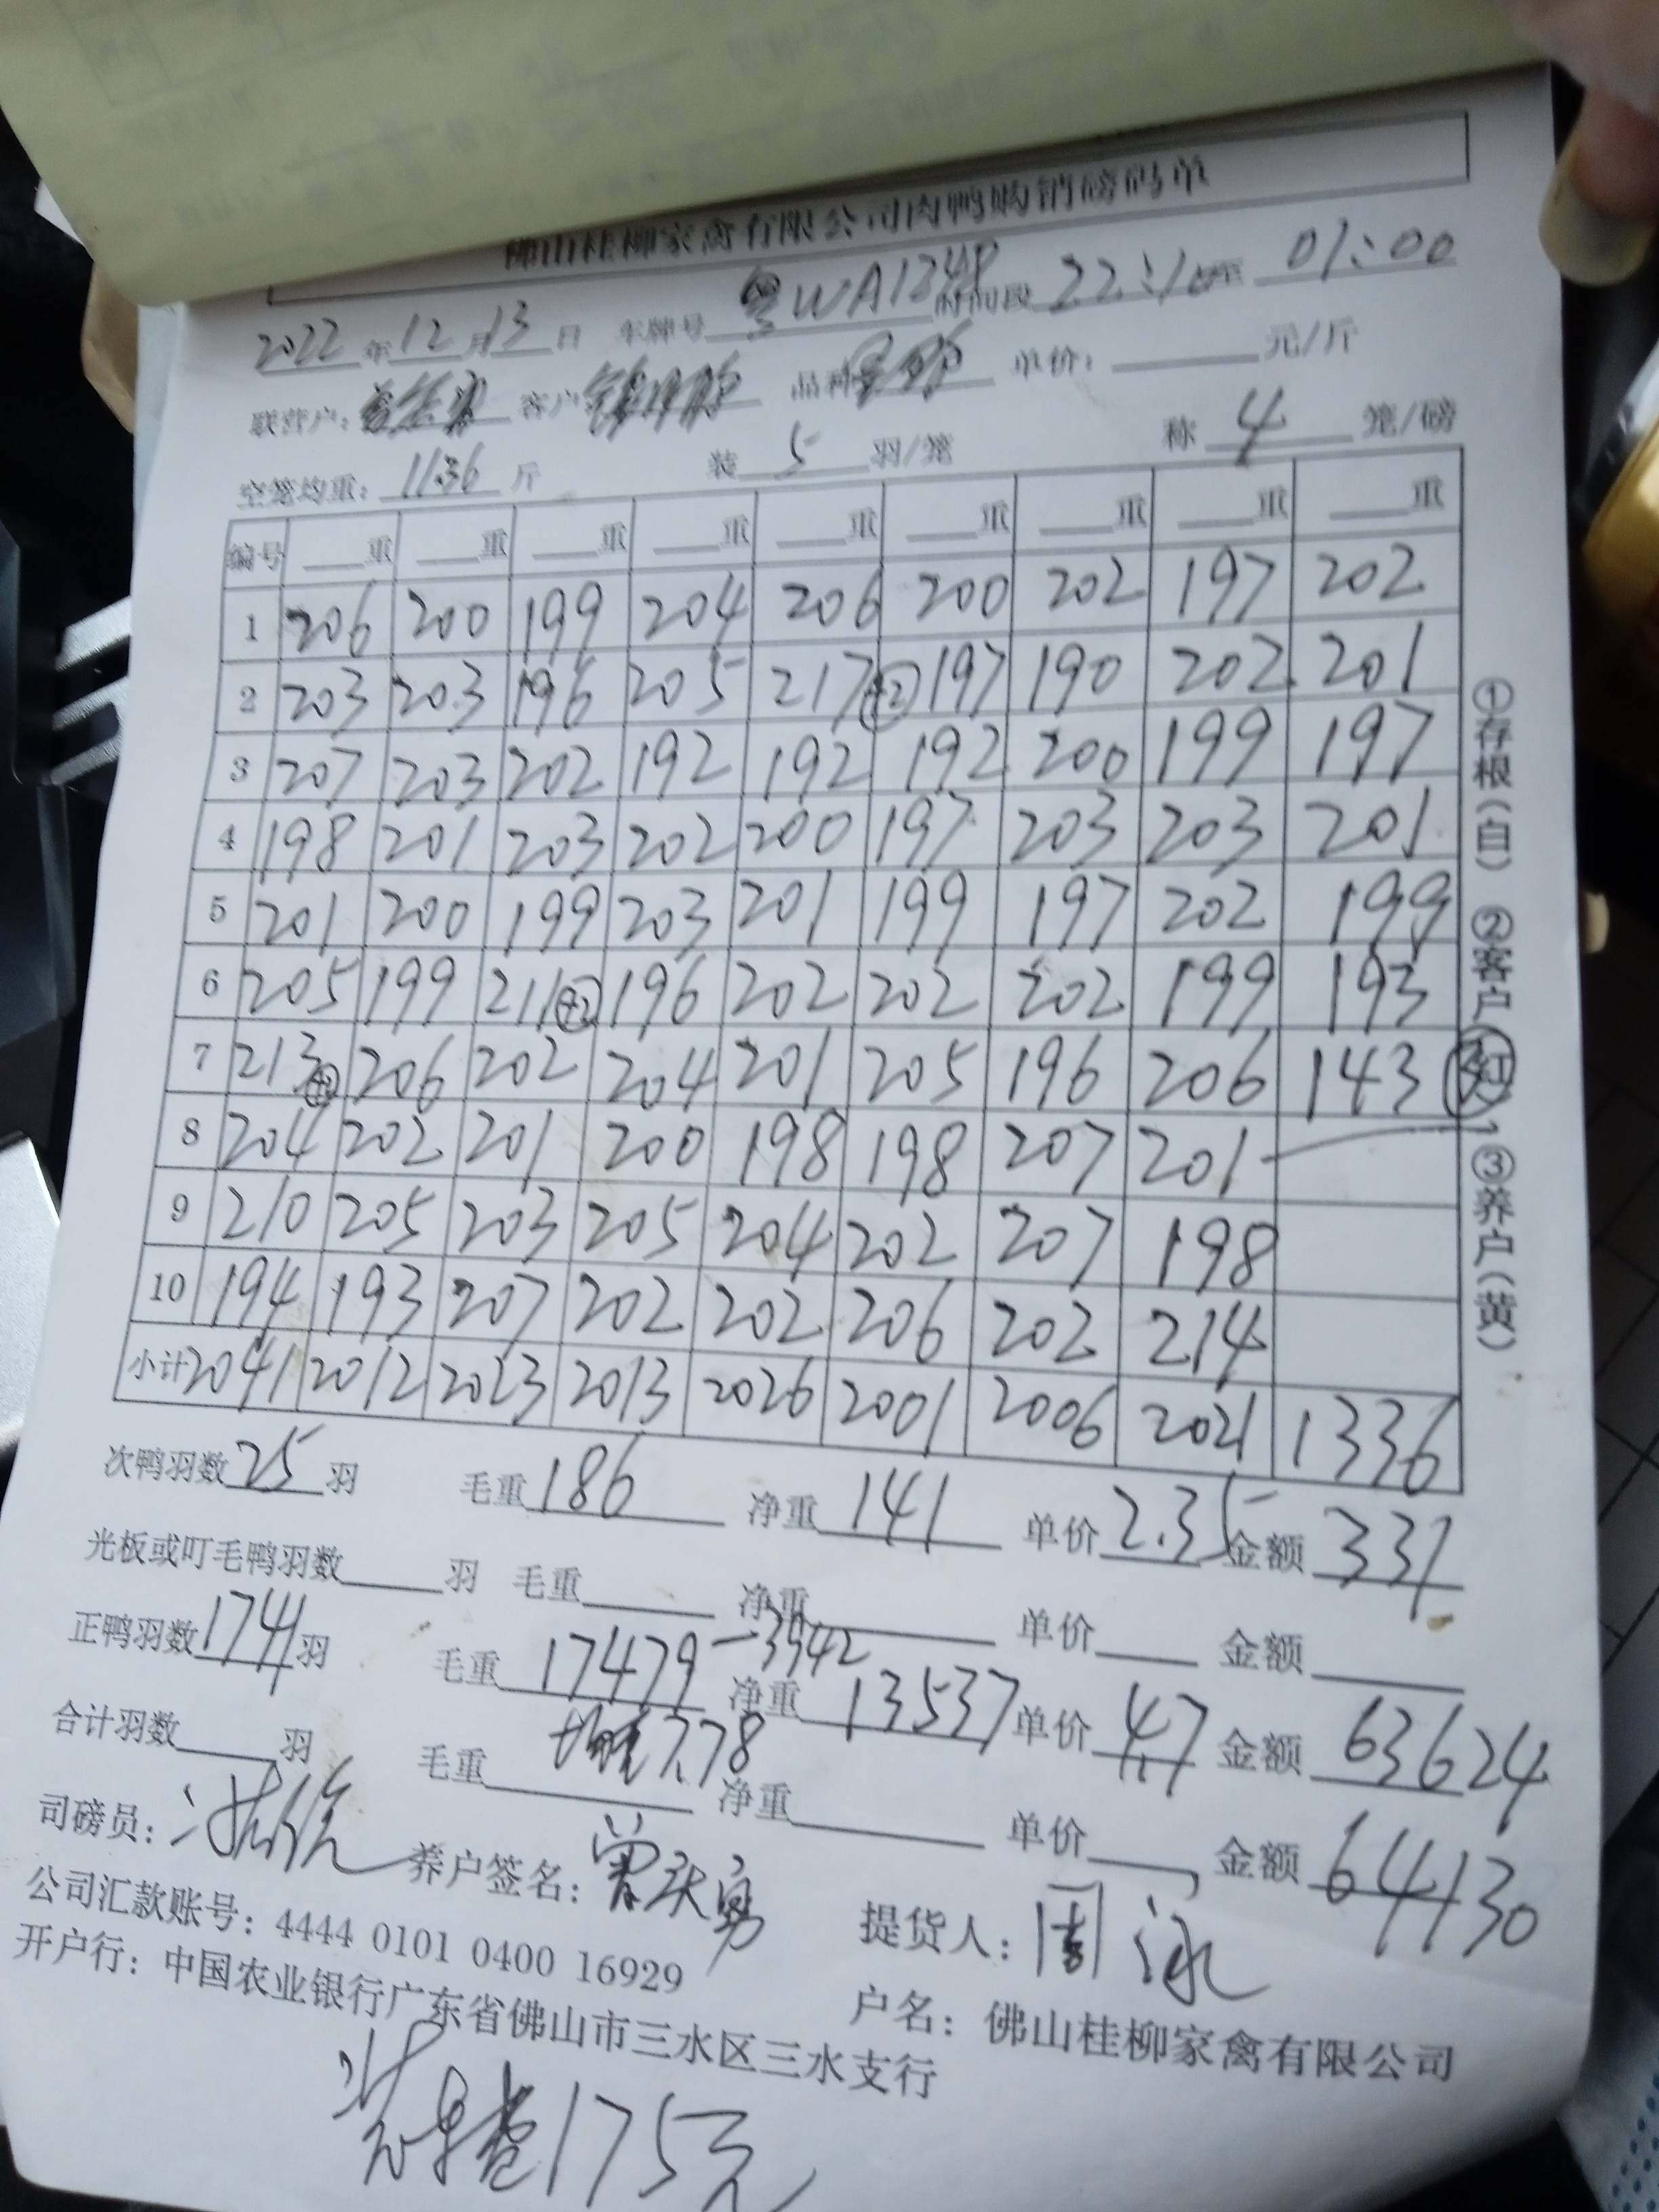 佛山桂柳家禽有限公司肉鸭购销磅码单
2022年12月13日 车牌号 粤WA1248 时间段 22:10至 01:00
联营户: 客户 品种 单价: 元/斤
空笼均重: 11.36 斤 装 5 羽/笼 称 4 笼/磅
编号 重 重 重 重 重 重 重 重 重
1 206 200 199 204 206 200 202 197 202
2 203 203 196 205 217 +2 197 190 202 201
3 207 203 202 192 192 192 200 199 197
4 198 201 203 202 200 197 203 203 201
5 201 200 199 203 201 199 197 202 199
6 205 199 211 +2 196 202 202 202 199 193
7 213 +2 206 202 204 201 205 196 206 143
8 204 202 201 200 198 198 207 201
9 210 205 203 205 204 202 207 198
10 194 193 207 202 202 206 202 214
小计 2041 2012 2023 2013 2026 2001 2006 2021 1336
①存根(白) ②客户(红) ③养户(黄)
次鸭羽数 25 羽 毛重 186 净重 141 单价 2.35 金额 331
光板或叮毛鸭羽数 羽 毛重 净重 单价 金额
正鸭羽数 1741 羽 毛重 17479 -3942 净重 13537 单价 4.7 金额 63624
合计羽数 羽 毛重 均重7.78 净重 单价 金额 64130
司磅员: 养户签名: 提货人: 周泳
公司汇款账号: 4444 0101 0400 16929 户名: 佛山桂柳家禽有限公司
开户行: 中国农业银行广东省佛山市三水区三水支行
装车费175元